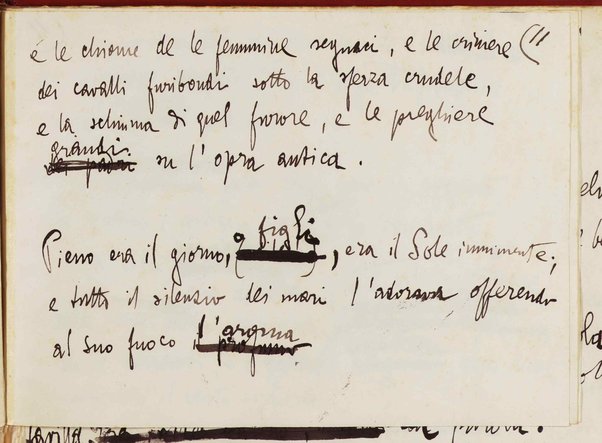 e le chiome de le femmine seguaci, e le criniere (11
dei cavalli furibondi sotto la sferza crudele,
e la schiuma di quel furore, e le preghiere
grandi
su l'opra antica.
o figli
Pieno era il giorno, , era il Sole imminente;
e tutto il silenzio dei mari l'adorava offerendo
l'aroma
al suo fuoco